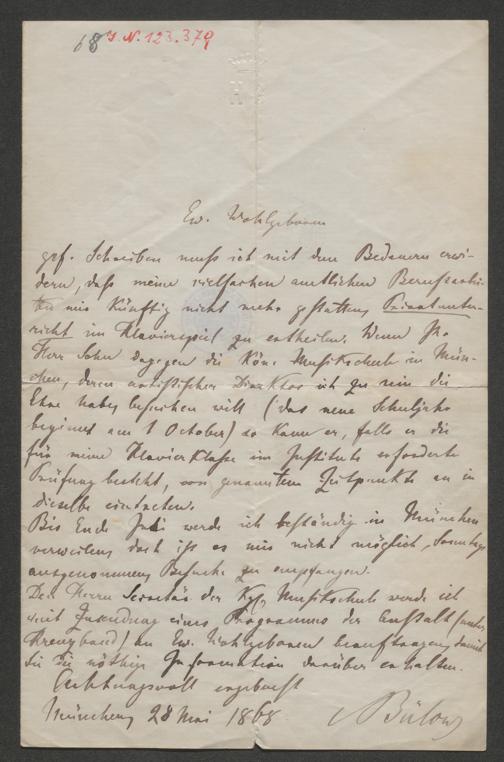 68 I. N. 123.379
Ew. Wohlgeboren
gef. Schreiben muß ich mit dem Bedauern erwi-
dern, daß meine vielfachen amtlichen Berufsarbei-
ten mir künftig nicht mehr gestatten, Privatunter-
richt im Klavierspiel zu ertheilen. Wenn Ihr
Herr Sohn dagegen die Kön. Musikschule in Mün-
chen, deren artistischer Direktor ich zu sein die
Ehre habe, besuchen will (das neue Schuljahr
beginnt am 1 October) so kann er, falls er die
für meine Klavierklasse im Institute erforderte
Prüfung besteht, von genanntem Zeitpunkte an in
dieselbe eintreten.
Bis Ende Juli werde ich beständig in München
verweilen, doch ist es mir nicht möglich, Sonntags
ausgenommen, Besuche zu empfangen.
Den Herrn Secretär der Kgl. Musikschule werde ich
mit Zusendung eines Programms der Anstalt (unter
Kreuzband) an Ew. Wohlgeboren beauftragen, damit
Sie die nöthige Information darüber erhalten.
Achtungsvoll ergebenst
München, 28 Mai 1868 Bülow